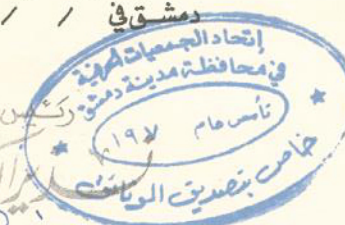 دمشق في / /
إتحاد الجمعيات الحرفية
في محافظة مدينة دمشق
تأسس عام
١٩٧
خاص بتصديق الوثائق
رئيس